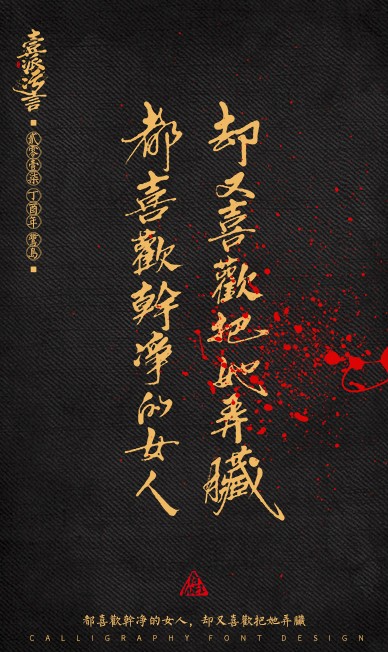 喜派污言
贰零壹柒 丁酉年
都喜歡幹凈的女人
却又喜歡把她弄臟
都喜歡幹凈的女人，却又喜歡把她弄臟
CALLIGRAPHY FONT DESIGN